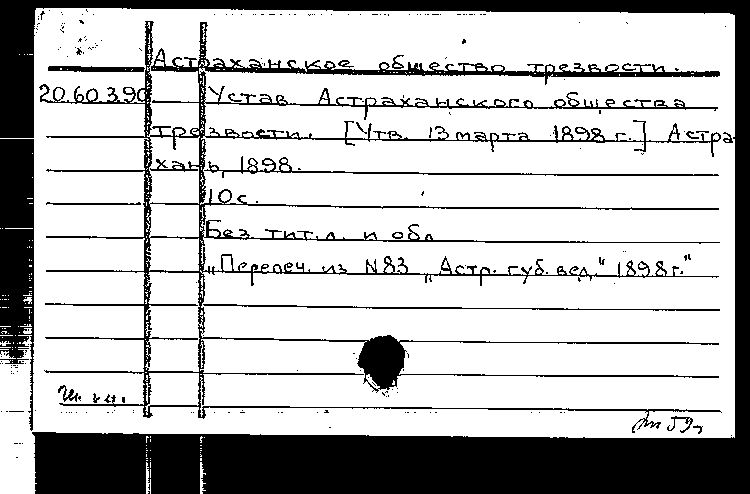 Астраханское общество трезвости.
20.60.390 Устав Астраханского общества
трезвости. [Утв. 13 марта 1898 г.] Астра-
хань, 1898.
10 с.
Без тит.л. и обл
„Перепеч. из N83 „Астр. губ. вед." 1898 г."
59г